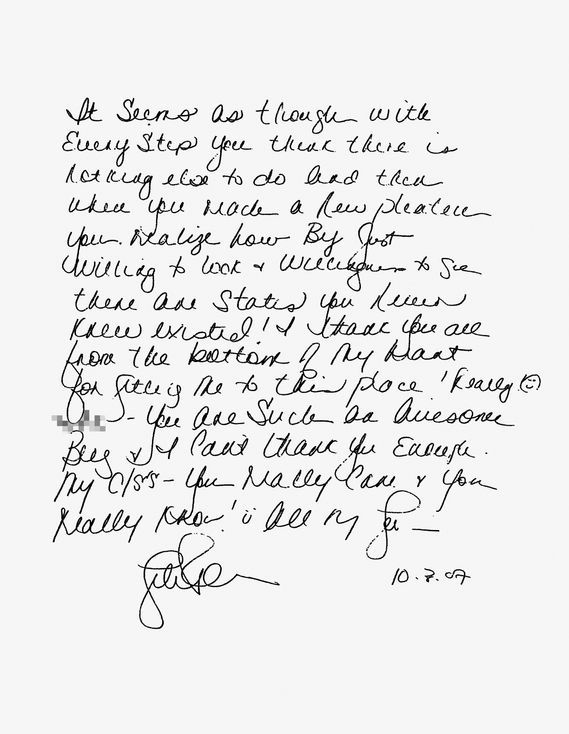 It Seems as though with
Every Step you think there is
nothing else to do and then
when you reach a New plateau
you realize how By Just
Willing to look + Willingness to See
there are States you Never
Knew existed! I thank you all
from the bottom of My Heart
for getting me to this place! Really
- You are Such an Awesome
Being + I Can't thank you Enough.
My C/S's - You Really Care + You
Really Know! All My
10.7.07